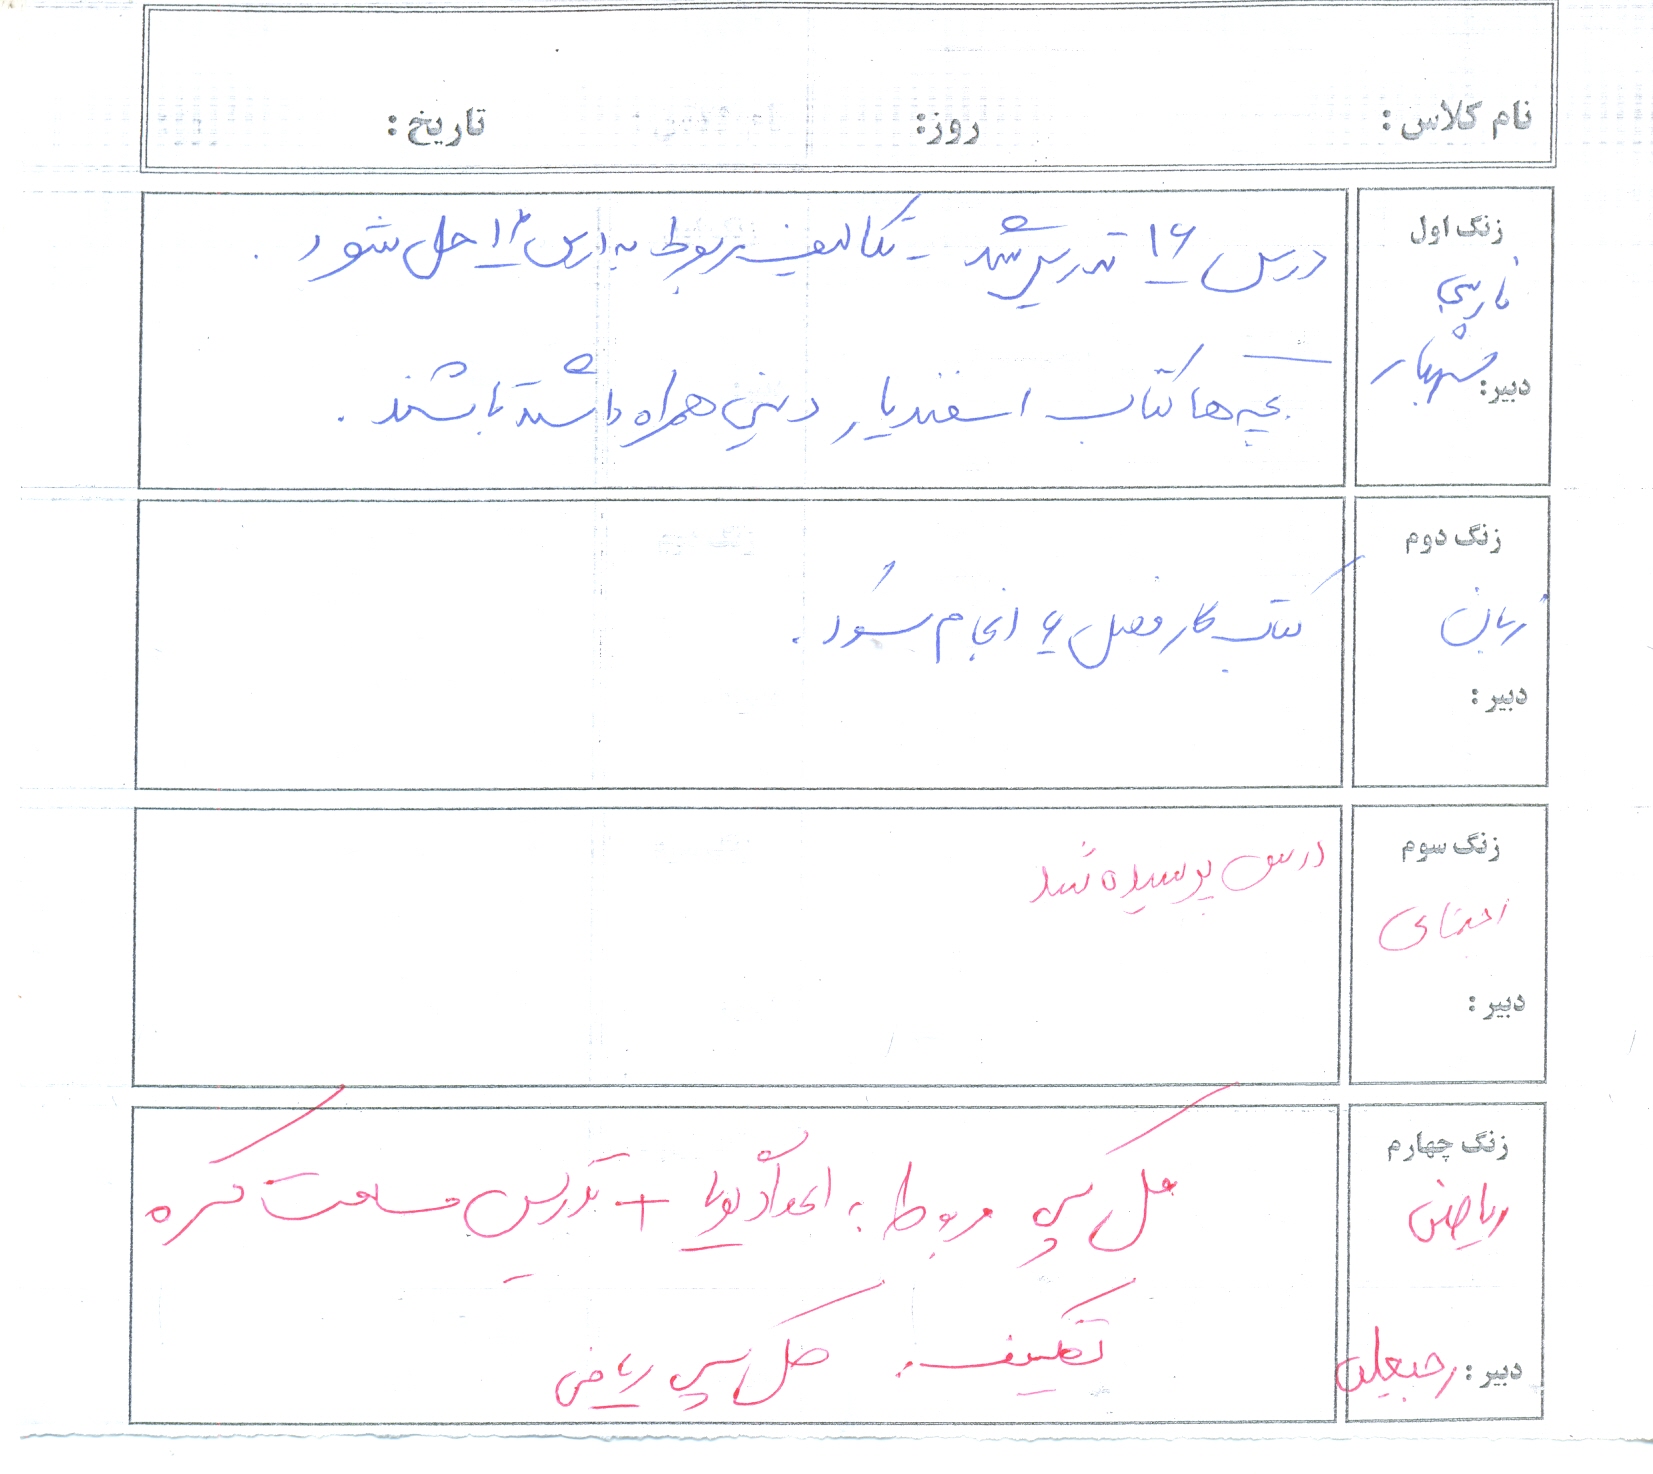 نام کلاس : روز: تاریخ :
زنگ اول
فارسی
دبیر:
درس ۱۶ تدریس شد - تکالیف مربوط به درس ۱۲ حل شود .
بچه ها کتاب اسفندیار دینی همراه داشته باشند .
زنگ دوم
زبان
دبیر :
کتاب کار فصل ۶ انجام شود .
زنگ سوم
اجتماعی
دبیر :
درس پرسیده شد
زنگ چهارم
ریاضی
دبیر : رجبعلی
مربوط به اعداد گویا + تدریس مساحت کره
تکلیف : حل ریاضی